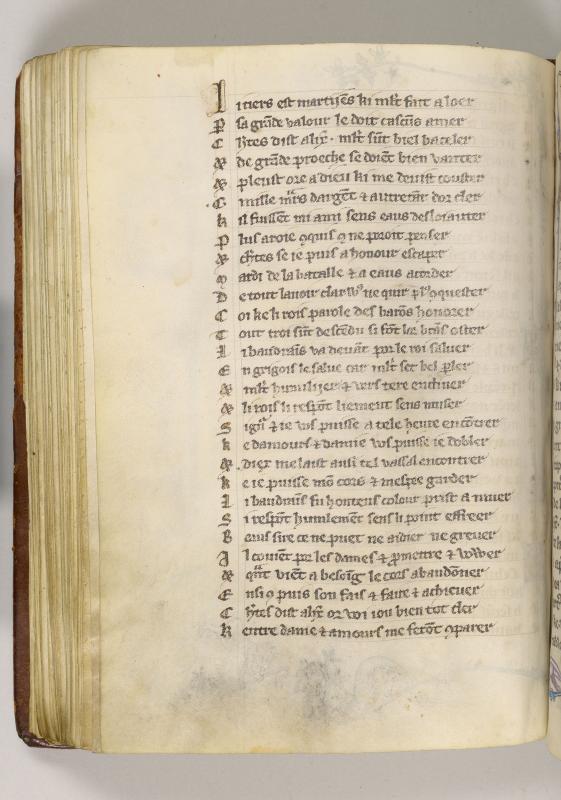 L i tiers est martijēs ki ml̄t fait a loer
P sa grāde valour le doit cascūs amer
C h̄tes dist alix̄ . ml̄t sūt biel baceler
& de grāde proeche se doiēt bien vanter
& pleust ore a dieu ki me deuist couster
C mille mʳs dargēt & autretāt dor cler
K il fuissēt mi ami sens eaus desloiauter
P lus aroie ꝯquis ꝯ ne poroit penser
& ch̄tes se ie puis a honour escaper
ardi de la bataille & a eaus acorder
D e tout lauoir clarꝰ ne quir plꝰ ꝯquester
C oi ke li rois parole des barōs honorer
T out troi sūt descēdu si fōt lor brās oster
L i baudrains va deuāt por le roi saluer
E n grigois le salue car ml̄t set bel p̄ler
& ml̄t humilijer & vers tere encliner
& li rois li respōt liement sens muser
S ign̄ & ie vꝰ puisse a tele heure encōtrer
k e damours & damie vꝰ puisse ie dobler
& diex me laist ausi tel vassal encontrer
k e ie puisse mō cors & mespee garder
L i baudrains fu honteus colour prist a muer
S i respōt humlemēt sens li point effreer
B eaus sire ce ne puet ne aidier ne greuer
I l couiēt por les dames & p̄metre & vouer
& q̄nt viēt a besoig le cors abandōner
E nsi ꝯ puis son fais & faire & achieuer
C h̄tes dist alix̄ or voi iou bien tot cler
K entre dame & amours me ferōt ꝯparer